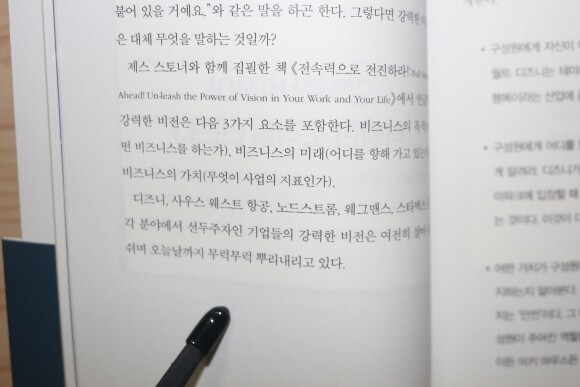 붙어 있을 거예요."와 같은 말을 하곤 한다. 그렇다면 강력한
은 대체 무엇을 말하는 것일까?
제스 스토너와 함께 집필한 책 《전속력으로 전진하라!
Ahead! Un-leash the Power of Vision in Your Work and Your Life》에서
강력한 비전은 다음 3가지 요소를 포함한다. 비즈니스의
떤 비즈니스를 하는가), 비즈니스의 미래(어디를 향해 가고
비즈니스의 가치(무엇이 사업의 지표인가).
디즈니, 사우스 웨스트 항공, 노드스트롬, 웨그맨스, 스타벅스
각 분야에서 선두주자인 기업들의 강력한 비전은 여전히
쉬며 오늘날까지 무럭무럭 뿌리내리고 있다.
• 구성원에게 자신이
월트 디즈니는 테마
행복이라는 산업에
• 구성원에게 어디를
게 알려라. 디즈니가
마파크에 입장할 때
는 것이다. 이것이
• 어떤 가치가 구성원
지하는지 알아본다.
치는 '안전'이다. 그
성원이 주어진 역할
이든 미키 마우스든